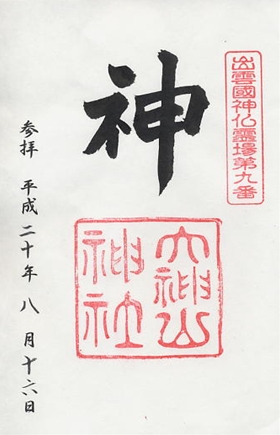 出雲國神仏靈場第九番
神
大神山
神社
参拝 平成二十年八月十六日